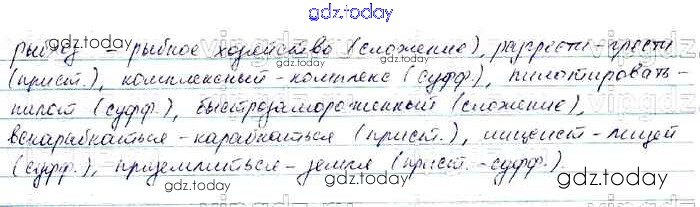 gdz.today
рыбхоз – рыбное хозяйство (сложение), разгрести – грести
(прист.), комплексный – комплекс (суфф.), пилотировать –
пилот (суфф.), быстрозамороженный (сложение),
вскарабкаться – карабкаться (прист.), лицеист – лицей
(суфф.), приземлиться – земля (прист. – суфф.).
gdz.today gdz.today gdz.today